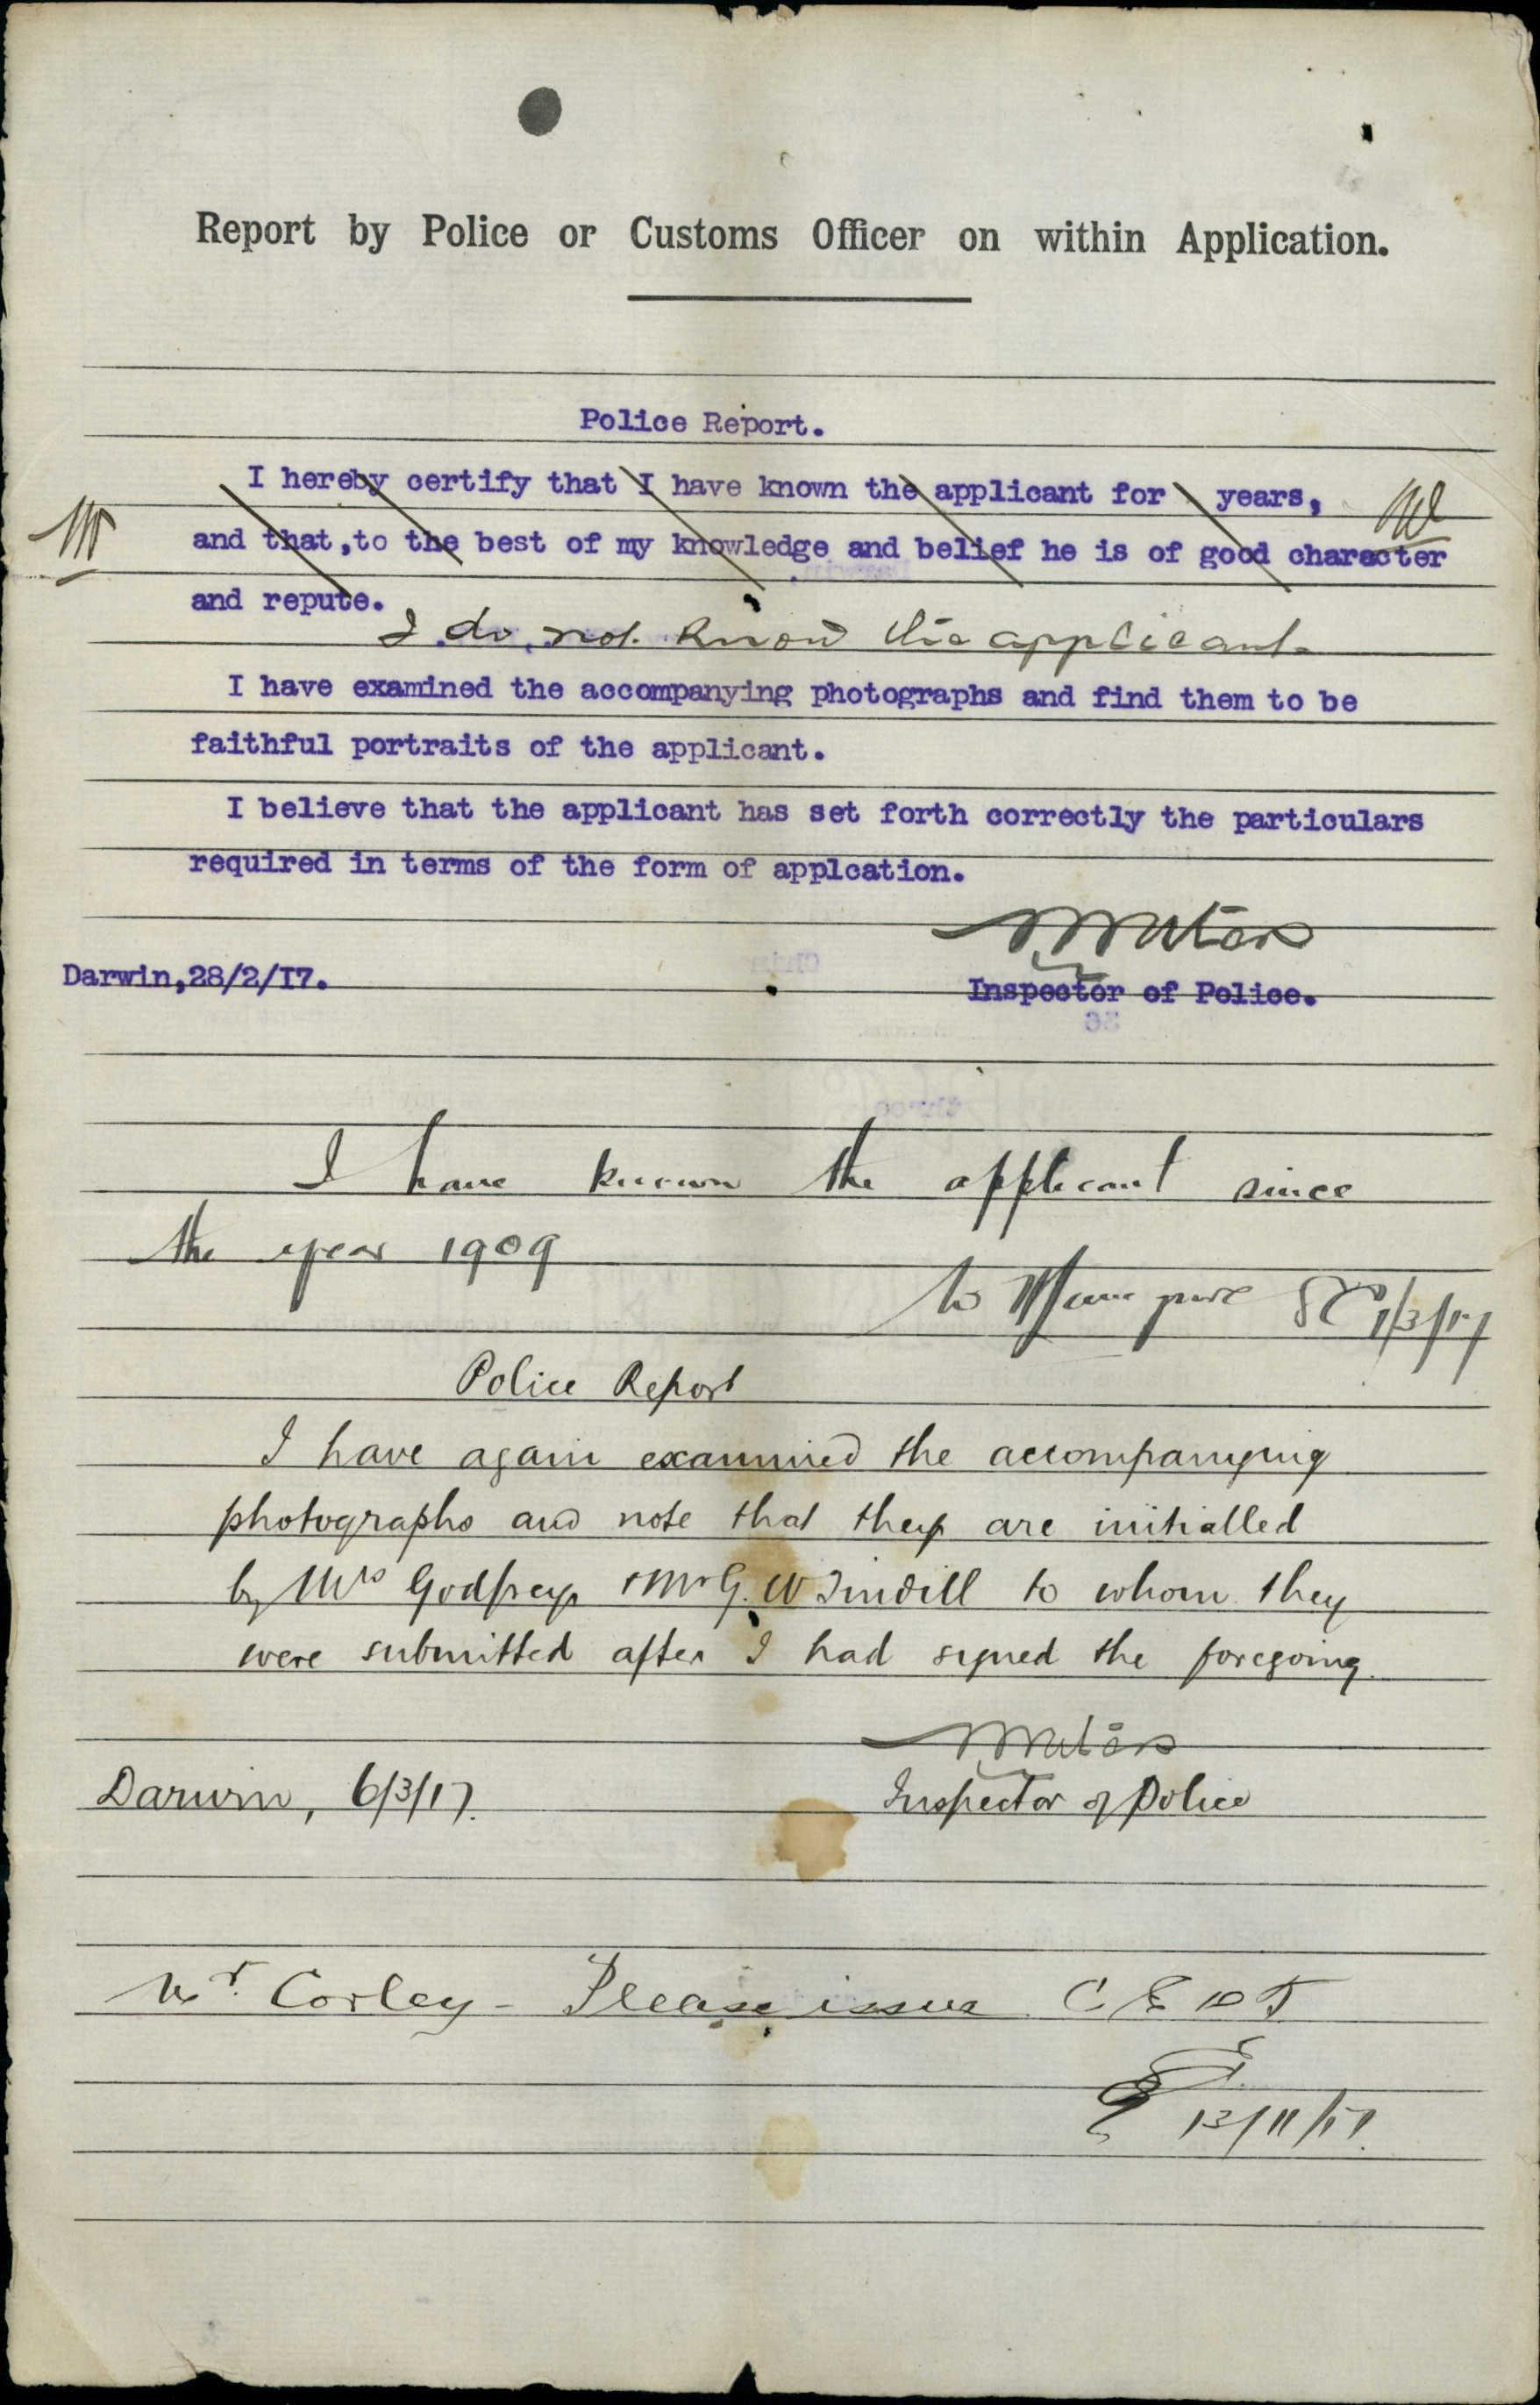 Report by Police or Customs Officer on within Application.
Police Report.
I hereby certify that I have known the applicant for years,
and that,to the best of my knowledge and belief he is of good character
and repute.
I do not know the applicant.
I have examined the accompanying photographs and find them to be
faithful portraits of the applicant.
I believe that the applicant has set forth correctly the particulars
required in terms of the form of applcation.
Darwin,28/2/17.
Inspector of Police.
I have known the applicant since
the year 1909
1/3/17
Police Report
I have again examined the accompanying
photographs and note that they are initialled
by Mrs Godfrey & Mr G. W Tindill to whom they
were submitted after I had signed the foregoing.
Darwin, 6/3/17.
Inspector of Police
Mr. Corley - Please issue C E D T
13/11/17.